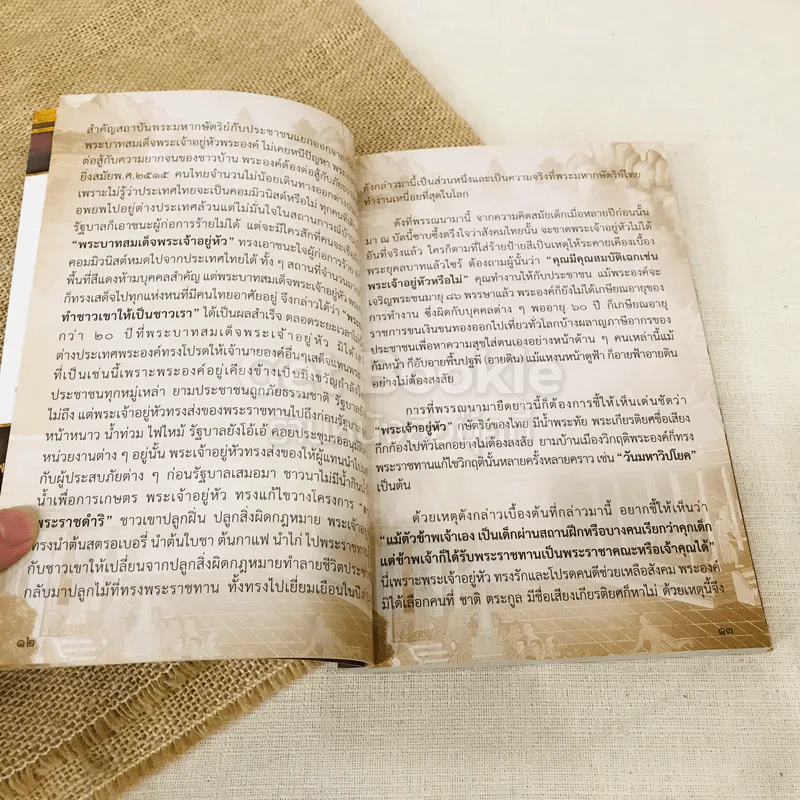 สำคัญสถาบันพระมหากษัตริย์กับประชาชนแยกออกจาก
พระบาทสมเด็จพระเจ้าอยู่หัวพระองค์ ไม่เคยหนีปัญหา
ต่อสู้กับความยากจนของชาวบ้าน พระองค์ต้องต่อสู้กับ
ยิ่งสมัยพ.ศ.๒๕๑๕ คนไทยจำนวนไม่น้อยเดินทางออกต่าง
เพราะไม่รู้ว่าประเทศไทยจะเป็นคอมมิวนิสต์หรือไม่ ทุกคน
อพยพไปอยู่ต่างประเทศล้วนแต่ไม่มั่นใจในสถานการณ์
รัฐบาลก็เอาชนะผู้ก่อการร้ายไม่ได้ แต่จะมีใครสักที่คนจะ
"พระบาทสมเด็จพระเจ้าอยู่หัว" ทรงเอาชนะใจผู้ก่อการร้าย
คอมมิวนิสต์หมดไปจากประเทศไทยได้ ทั้ง ๆ สถานที่จำนวน
พื้นที่สีแดงห้ามบุคคลสำคัญ แต่พระบาทสมเด็จพระเจ้าอยู่หัว
ก็ทรงเสด็จไปทุกแห่งหนที่มีคนไทยอาศัยอยู่ จึงกล่าวได้ว่า
ทำชาวเขาให้เป็นชาวเรา" ได้เป็นผลสำเร็จ ตลอดระยะเวลา
กว่า ๒๐ ปีที่พระบาทสมเด็จพระเจ้าอยู่หัว มิได้
ต่างประเทศพระองค์ทรงโปรดให้เจ้านายองค์อื่นๆเสด็จแทน
ที่เป็นเช่นนี้เพราะพระองค์อยู่เคียงข้างเป็นมิ่งขวัญกำลัง
ประชาชนทุกหมู่เหล่า ยามประชาชนถูกภัยธรรมชาติ รัฐบาล
ไม่ถึง แต่พระเจ้าอยู่หัวทรงส่งของพระราชทานไปถึงก่อน
หน้าหนาว น้ำท่วม ไฟไหม้ รัฐบาลยังโอ้เอ้ คอยประชุมรออนุมัติ
หน่วยงานต่าง ๆ อยู่นั้น พระเจ้าอยู่หัวทรงส่งของให้ผู้แทนนำไป
กับผู้ประสบภัยต่าง ๆ ก่อนรัฐบาลเสมอมา ชาวนาไม่มีน้ำ
น้ำเพื่อการเกษตร พระเจ้าอยู่หัว ทรงแก้ไขวางโครงการ
พระราชดำริ" ชาวเขาปลูกฝิ่น ปลูกสิ่งผิดกฎหมาย พระเจ้าอยู่
ทรงนำต้นสตรอเบอรี่ นำต้นใบชา ต้นกาแฟ นำไก่ ไปพระราชทาน
กับชาวเขาให้เปลี่ยนจากปลูกสิ่งผิดกฎหมายทำลายชีวิต
กลับมาปลูกไม้ที่ทรงพระราชทาน ทั้งทรงไปเยี่ยมเยือนใน
๑๒
ดังกล่าวมานี้เป็นส่วนหนึ่งและเป็นความจริงที่พระมหากษัตริย์ไทย
ทำงานเหนื่อยที่สุดในโลก
ดังที่พรรณนามานี้ จากความคิดสมัยเด็กเมื่อหลายปีก่อนนั้น
มา ณ บัดนี้ซาบซึ้งตรึงใจว่าสังคมไทยนั้น จะขาดพระเจ้าอยู่หัวไม่ได้
อันที่จริงแล้ว ใครก็ตามที่ใส่ร้ายป้ายสีเป็นเหตุให้ระคายเคืองเบื้อง
พระยุคลบาทแล้วไซร้ ต้องถามผู้นั้นว่า "คุณมีคุณสมบัติเฉกเช่น
พระเจ้าอยู่หัวหรือไม่" คุณทำงานให้กับประชาชน แม้พระองค์จะ
เจริญพระชนมายุ ๘๖ พรรษาแล้ว พระองค์ก็ยังไม่ได้เกษียณอายุของ
การทำงาน ซึ่งผิดกับบุคคลต่าง ๆ พออายุ ๖๐ ปี ก็เกษียณอายุ
ราชการขนเงินขนทองออกไปเที่ยวทั่วโลกบ้างผลาญภาษีอากรของ
ประชาชนเพื่อหาความสุขใส่ตนเองอย่างหน้าด้าน ๆ คนเหล่านี้แม้
ก้มหน้า ก็อับอายพื้นปฐพี (อายดิน) แม้แหงนหน้าดูฟ้า ก็อายฟ้าอายดิน
อย่างไม่ต้องสงสัย
การที่พรรณนามายืดยาวนี้ก็ต้องการชี้ให้เห็นเด่นชัดว่า
"พระเจ้าอยู่หัว" กษัตริย์ของไทย มีน้ำพระทัย พระเกียรติยศชื่อเสียง
กึกก้องไปทั่วโลกอย่างไม่ต้องสงสัย ยามบ้านเมืองวิกฤติพระองค์ก็ทรง
พระราชทานแก้ไขวิกฤตินั้นหลายครั้งหลายคราว เช่น "วันมหาวิปโยค"
เป็นต้น
ด้วยเหตุดังกล่าวเบื้องต้นที่กล่าวมานี้ อยากชี้ให้เห็นว่า
"แม้ตัวข้าพเจ้าเอง เป็นเด็กผ่านสถานฝึกหรือบางคนเรียกว่าคุกเด็ก
แต่ข้าพเจ้าก็ได้รับพระราชทานเป็นพระราชาคณะหรือเจ้าคุณได้"
นี่เพราะพระเจ้าอยู่หัว ทรงรักและโปรดคนดีช่วยเหลือสังคม พระองค์
มิได้เลือกคนที่ ชาติ ตระกูล มีชื่อเสียงเกียรติยศก็หาไม่ ด้วยเหตุนี้จึง
๑๓